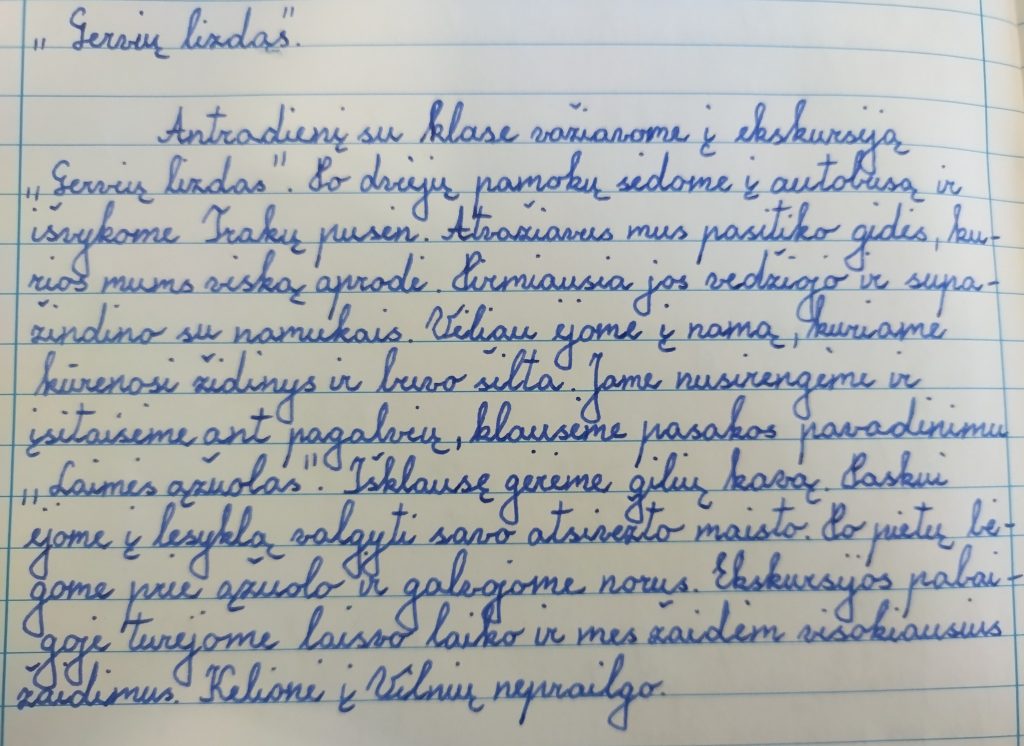 „Gervių lizdas".
Antradienį su klase važiavome į ekskursiją
„Gervių lizdas". Po dviejų pamokų sėdome į autobusą ir
išvykome Trakų pusėn. Atvažiavus mus pasitiko gidės, ku-
rios mums viską aprodė. Pirmiausia jos vedžiojo ir supa-
žindino su namukais. Vėliau ėjome į namą, kuriame
kūrenosi židinys ir buvo šilta. Jame nusirengėme ir
įsitaisėme ant pagalvių, klausėme pasakos pavadinimu
„Laimės ąžuolas". Išklausę gėrėme gilių kavą. Paskui
ėjome į lesyklą valgyti savo atsivežto maisto. Po pietų bė-
gome prie ąžuolo ir galvojome norus. Ekskursijos pabai-
goje turėjome laisvo laiko ir mes žaidėm visokiausius
žaidimus. Kelionė į Vilnių neprailgo.